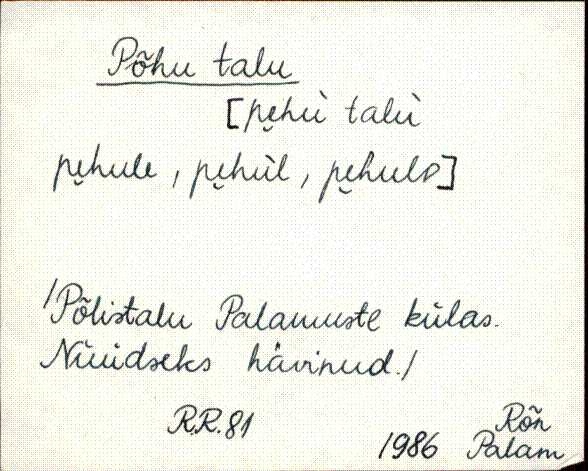 Põhu talu
[pe̮hù talù
pe̮hule, pe̮hùl, pe̮hulᴅ]
/Põlistalu Palamuste külas.
Nüüdseks hävinud./
R.R. 81
Rõn
1986 Palam